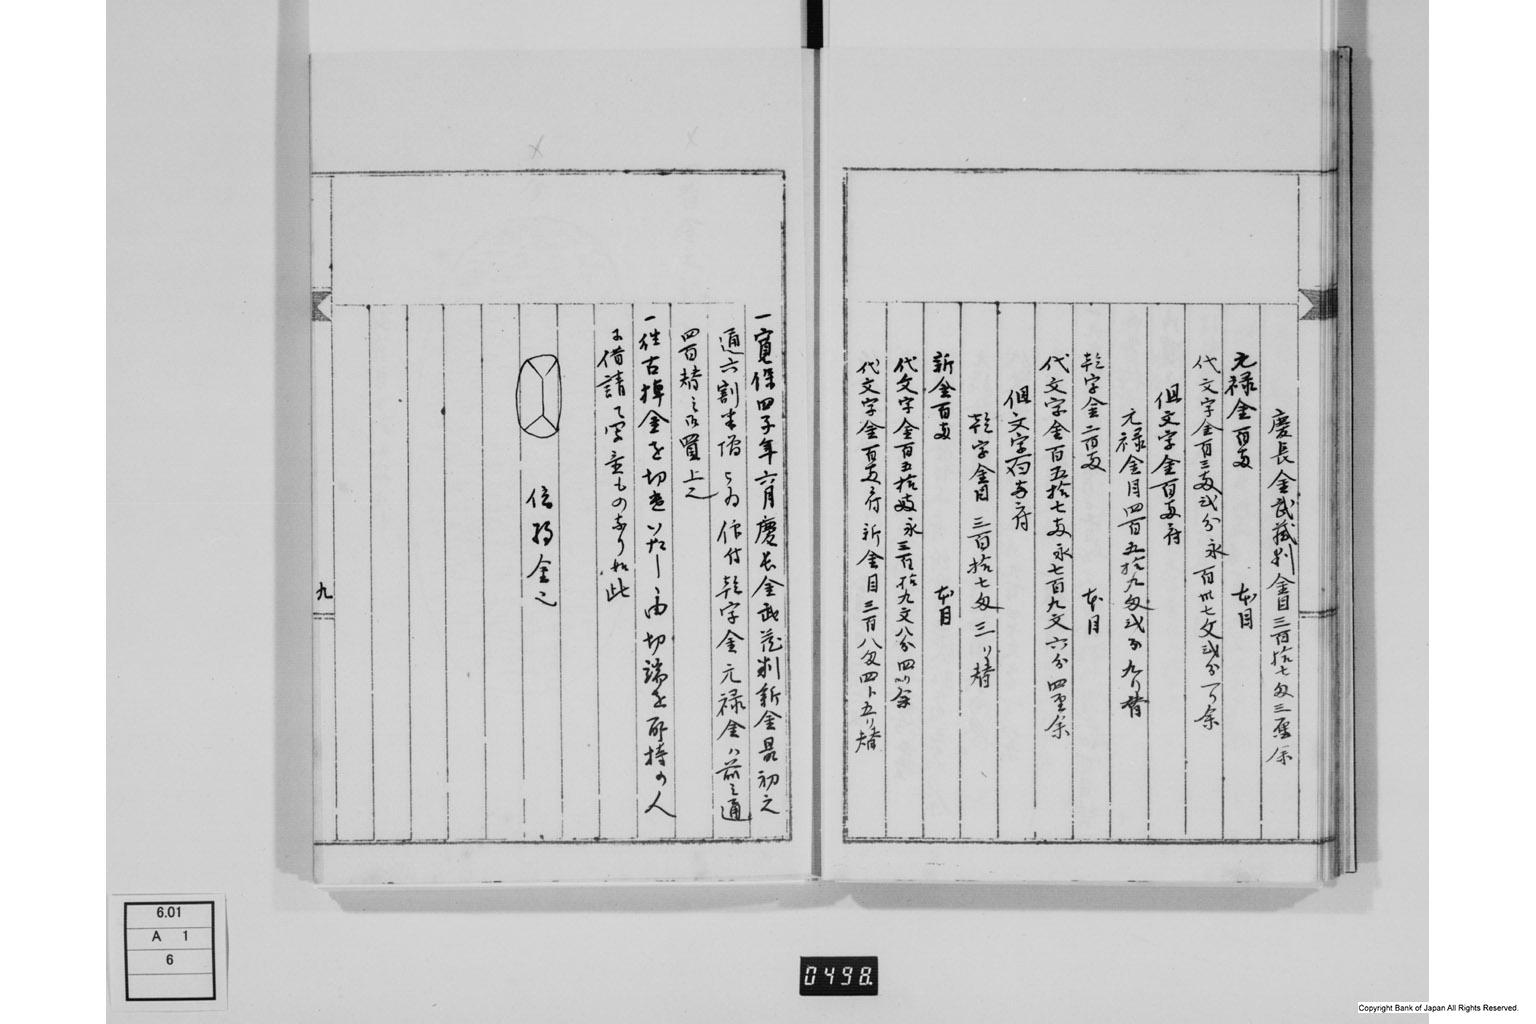 慶長金武蔵判金目三百拾七匁三厘余
元禄金百両 本目
代文字金百三両弐分永百卅七文弐分余
但文字金百両ニ付
元禄金目四百五拾九匁弐分九り替
乾字金二百両 本目
代文字金百五拾七両永七百九文六分四厘余
但文字百両ニ付
乾字金目三百拾七匁三リ替
新金百両 本目
代文字金百五拾両永三百拾九文八分四リ余
代文字金百両ニ付新金目三百八匁四分五リ替
一寛保四子年六月慶長金武蔵判新金最初之
通六割半増ニ被仰付乾字金元禄金ハ前之通
四百替之以買上之
一往古棹金を切遣ひ由切端を所持の人
ニ借請て写置もの如此
位 金之
九
6.01
A 1
6
0498.
Copyright Bank of Japan All Rights Reserved.